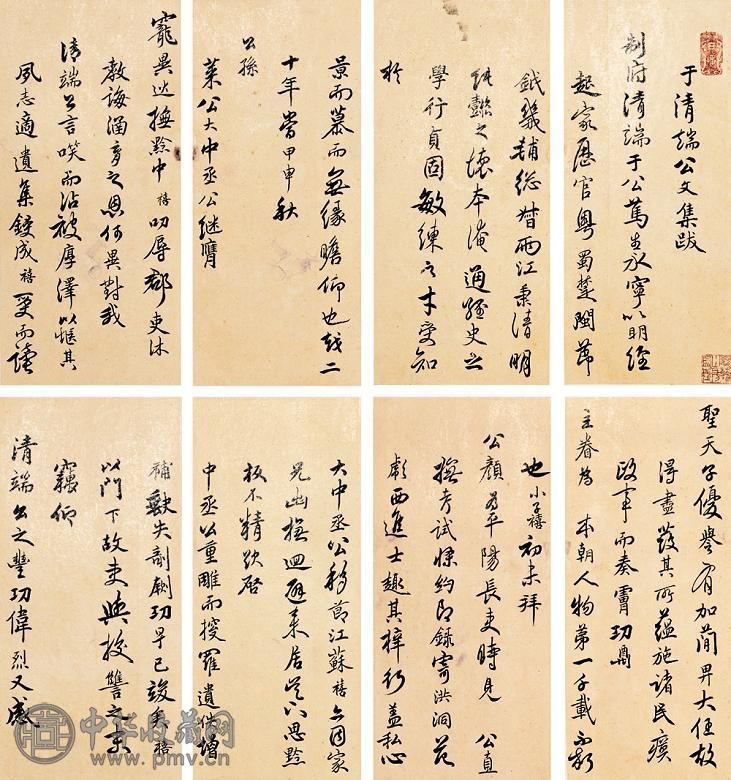 于清端公文集跋
制府清端于公篤生永寧以明經
起家歷官粵蜀楚閩節
鉞畿輔總督兩江秉清明
純懿之懷本淹通經史之
學行貞固敏練之才受知
於
聖天子優譽有加簡畀大任故
得盡發其所蘊施諸民瘼
政事而奏膚功鼎
主眷為本朝人物第一千載不朽
也小子禧初未拜
公顏為平陽長吏時見公直
撫考試條約即錄寄洪洞范
彪西進士趣其梓行蓋私心
景而慕而無緣瞻仰也越二
十年當甲申秋
公孫
萊公大中丞公繼膺
寵異出撫黔中禧叨辱郡吏沐
教誨涵育之恩何異對我
清端公言笑而沾被厚澤以愜其
夙志適遺集鋟成禧受而讀
大中丞公移節江蘇禧亦因家
兄撫迴避來居是下思黔
板不精欲啓
中丞以重雕而搜羅遺佚增
補缺失剞劂功早已竣矣禧
以門下故吏與校讐之末
竊仰
清端公之豐功偉烈又感
中华收藏网
www.pmv.cn